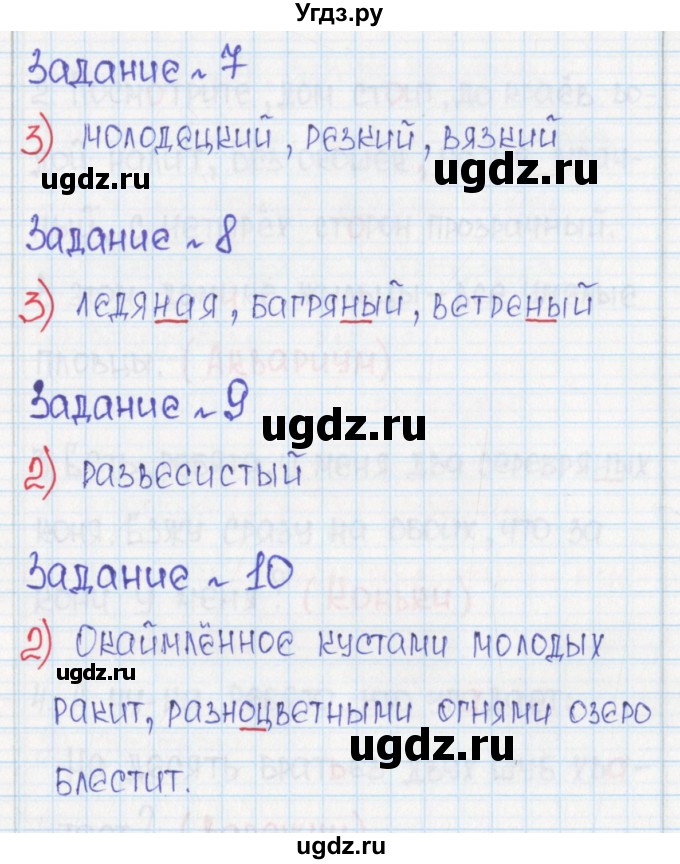 Угдз.ру
Задание ~ 7
3) молодецкий, резкий, вязкий
ugdz.ru ugdz.ru
Задание ~ 8
3) ледяная, багряный, ветреный
Задание ~ 9
ugdz.ru
2) развесистый
Задание ~ 10
2) Окаймлённое кустами молодых
ugdz.ru
ракит, разноцветными огнями озеро
ugdz.ru
блестит.
ugdz.ru